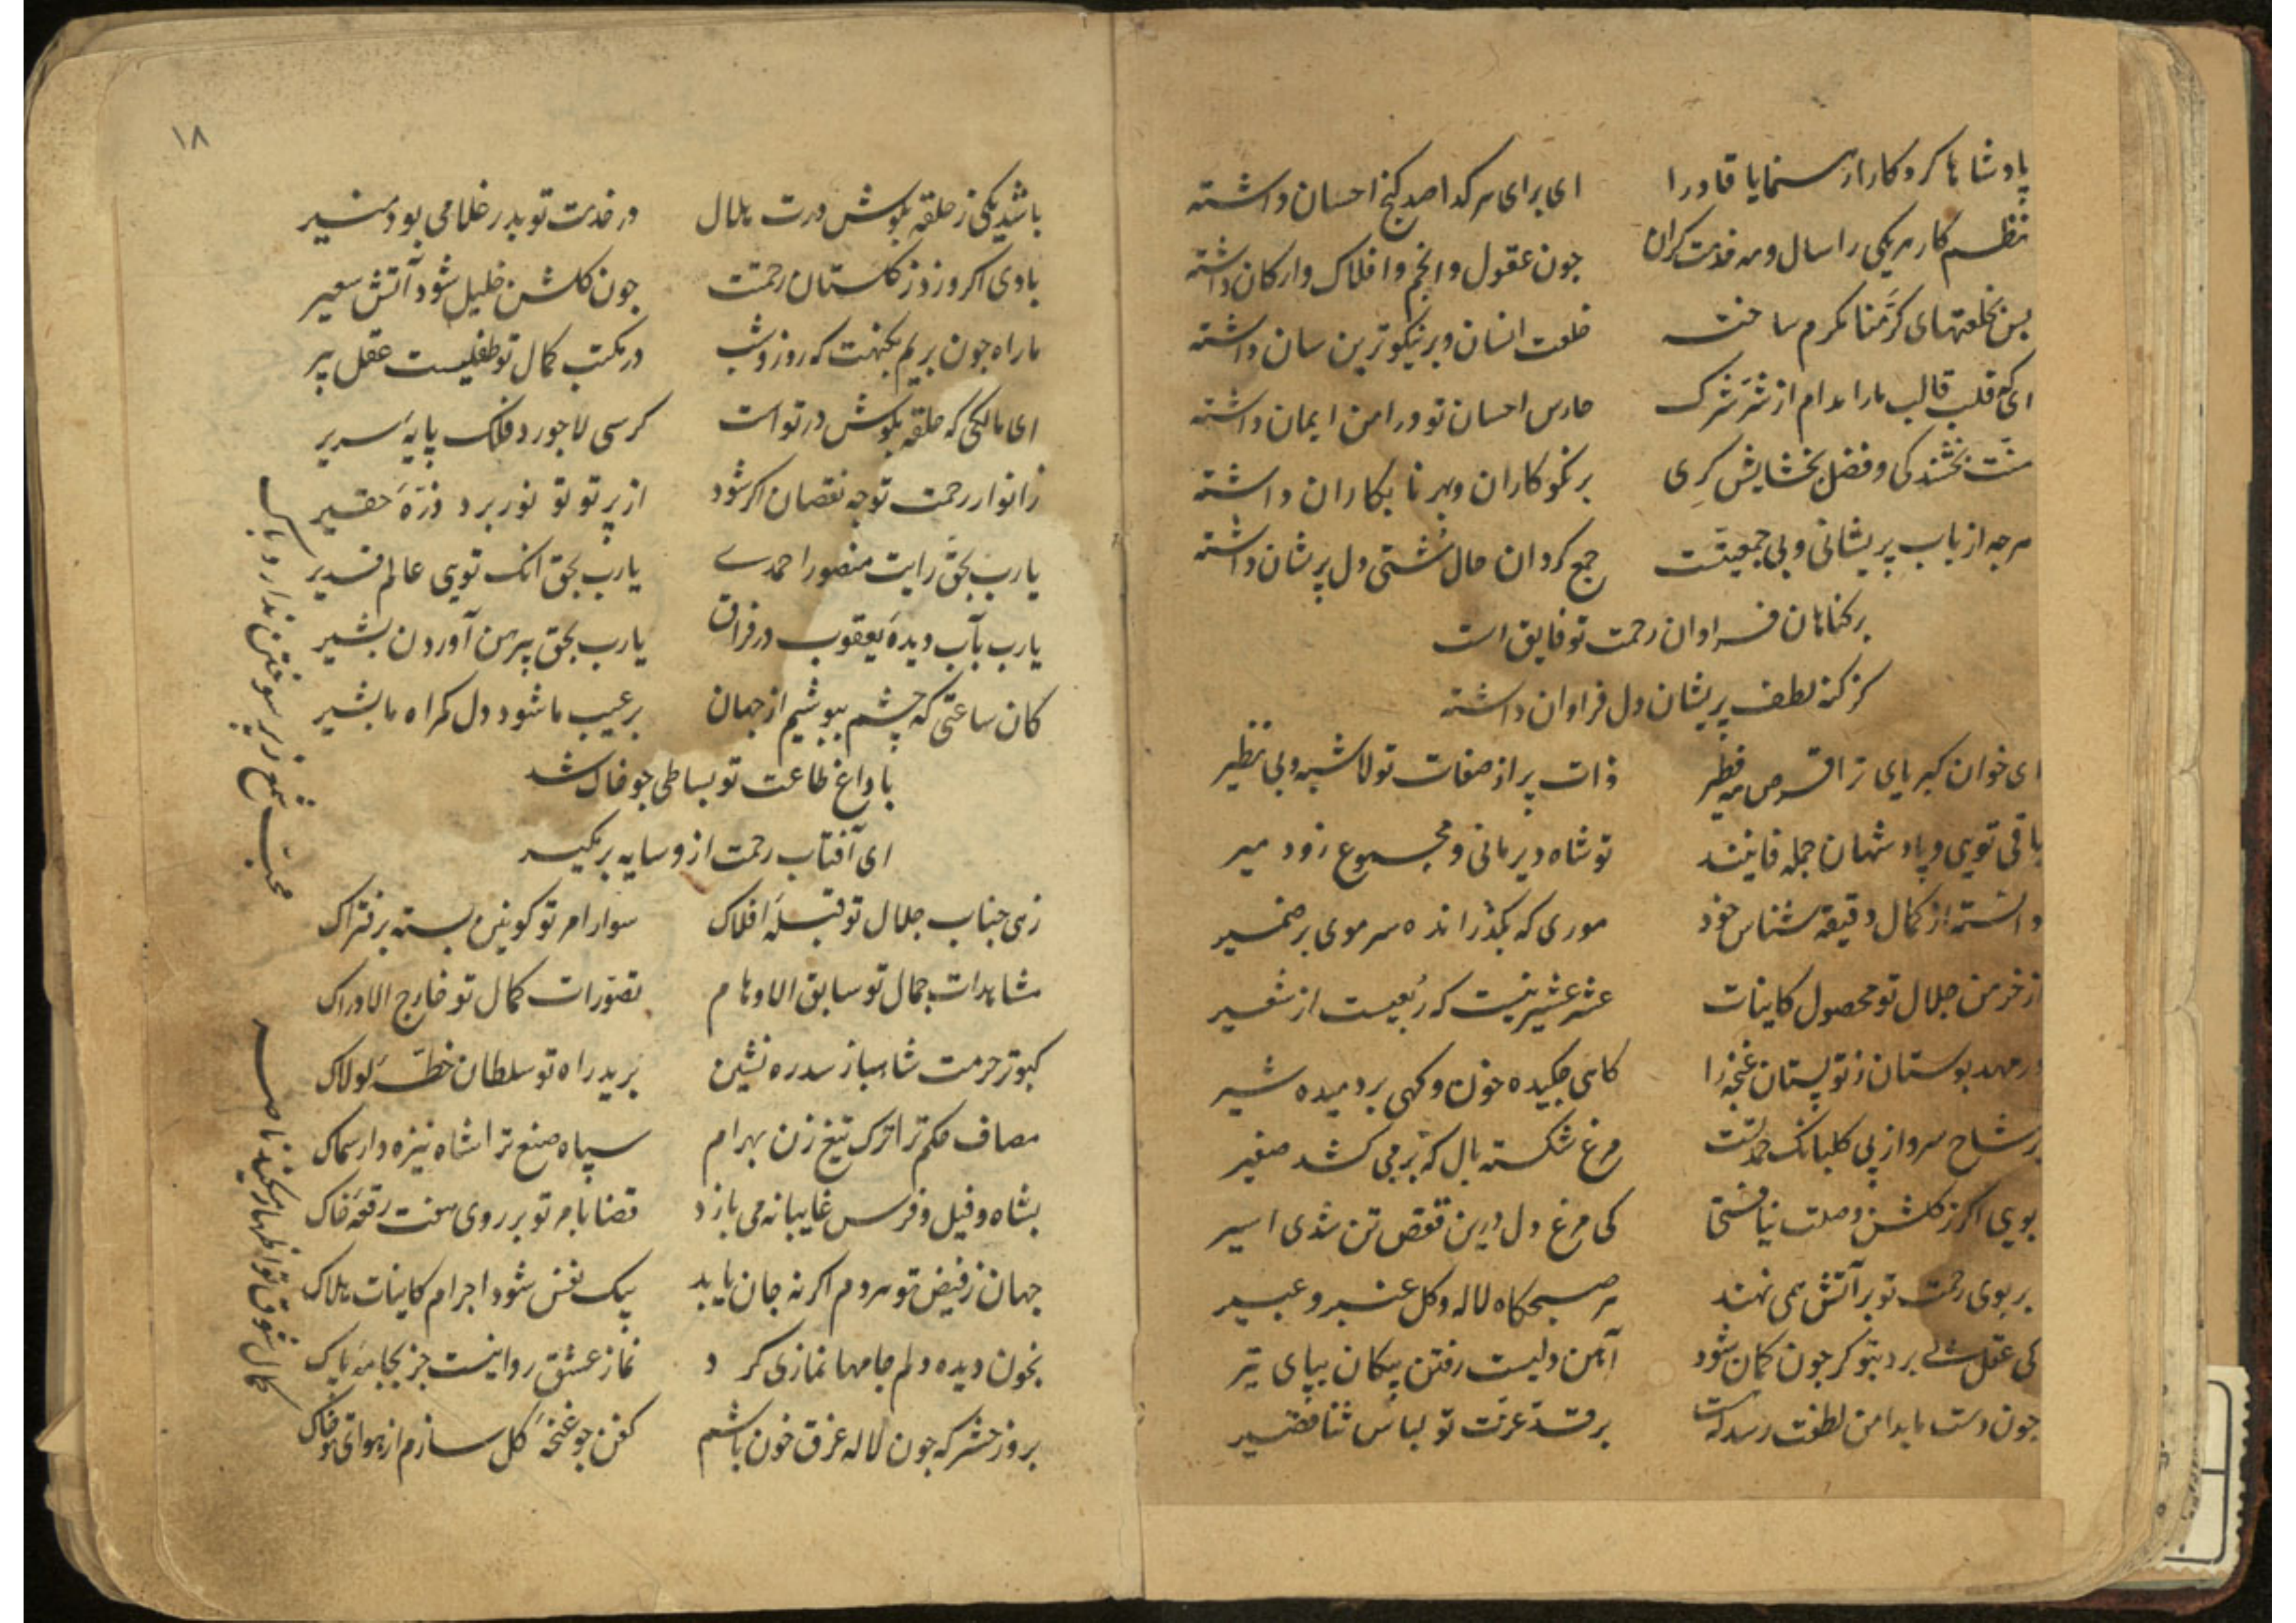 پادشاها کردکارا رهنمایا قادرا ای برای هر کدا صد کنج احسان داشته
نظم کار هر یکی را سال و مه خدمت کران جون عقول و انجم و افلاک و ارکان داشته
بس بخلعتهای کرّمنا مکرم ساخته خلعت انسان و بر نیکوترین سان داشته
ای که قلب قالب ما را مدام از شرّ شرک حارس احسان تو در امن ایمان داشته
منّت بخشندکی و فضل بخشایش کری بر نکوکاران و بر نابکاران داشته
هرجه از باب پریشانی و بی جمعیتست جمع کردان حال مشتی دل پریشان داشته
بر کناهان فراوان رحمت تو فایق است
کز کنه لطف پریشان دل فراوان داشته
ای خوان کبریای ترا قرص مه فطیر ذات پر از صفات تو لا شبه و بی نظیر
باقی تویی و پادشهان جمله فانیند تو شاه دیرمانی و مجموع زود میر
دانسته از کمال دقیقه شناس خود موری که بکذراند سر موی بر ضمیر
از خرمن جلال تو محصول کاینات عشر عشیر نیست که ربعیست از شعیر
در مهد بوستان ز تو پستان غنچه را کاهی جکیده خون و کهی بردمیده شیر
بر شاخ سرو از پی کلبانک حمد تست مرغ شکسته بال که بر می کشد صفیر
بویی اکر ز کلشن وصلت نیافتی کی مرغ دل درین قفص تن شدی اسیر
بر بوی رحمت تو بر آتش همی نهند هر صبحکاه لاله و کل عنبر و عبیر
کی عقل برد بتو کر جون کمان شود آهن دلیست رفتن پیکان بپای تیر
جون دست ما بدامن لطفت رسد که هست بر قد عزت تو لباس ثنا قصیر
۱۸
باشد یکی ز حلقه بکوش درت هلال در خدمت تو بدر غلامی بود منیر
بادی اکر وزد ز کلستان رحمتت جون کلشن خلیل شود آتش سعیر
ما راه جون بریم بکنهت که روز و شب در مکتب کمال تو طفلیست عقل پیر
ای مالکی که حلقه بکوش در تو است کرسی لاجورد فلک پایهٔ سریر
ز انوار رحمت تو جه نقصان اکر شود از پرتو تو نور برد ذرّهٔ حقیر
یارب بحق رایت منصور احمدی یارب بحق انک تویی عالم قدیر
یارب بآب دیدهٔ یعقوب در فراق یارب بحق پیرهن آوردن بشیر
کان ساعتی که چشم بپوشیم از جهان بر عیب ما شود دل کمراه ما بشیر
با داغ طاعت تو بساطی جو خاک شد
ای آفتاب رحمت ازو سایه بر مکیر
زهی جناب جلال تو قبلهٔ افلاک سوار امر تو کونین بسته بر فتراک
مشاهدات جمال تو سابق الاوهام تصوّرات کمال تو خارج الادراک
کبوتر حرمت شاهباز سدره نشین برید راه تو سلطان خطّهٔ لولاک
مصاف حکم ترا ترک تیغ زن بهرام سپاه صنع ترا شاه نیزه دار سماک
بشاه و فیل و فرس غایبانه می بازد قضا بامر تو بر روی هفت رقعهٔ خاک
جهان ز فیض تو هر دم اکر نه جان یابد بیک نفس شود اجرام کاینات هلاک
بخون دیده دلم جامها نمازی کرد نماز عشق روا نیست جز بجامهٔ پاک
بروز حشر که جون لاله غرق خون باشم کفن جو غنچهٔ کل سازم از هوای تو خاک
محبت شمع زیر سوختن ندارد باک